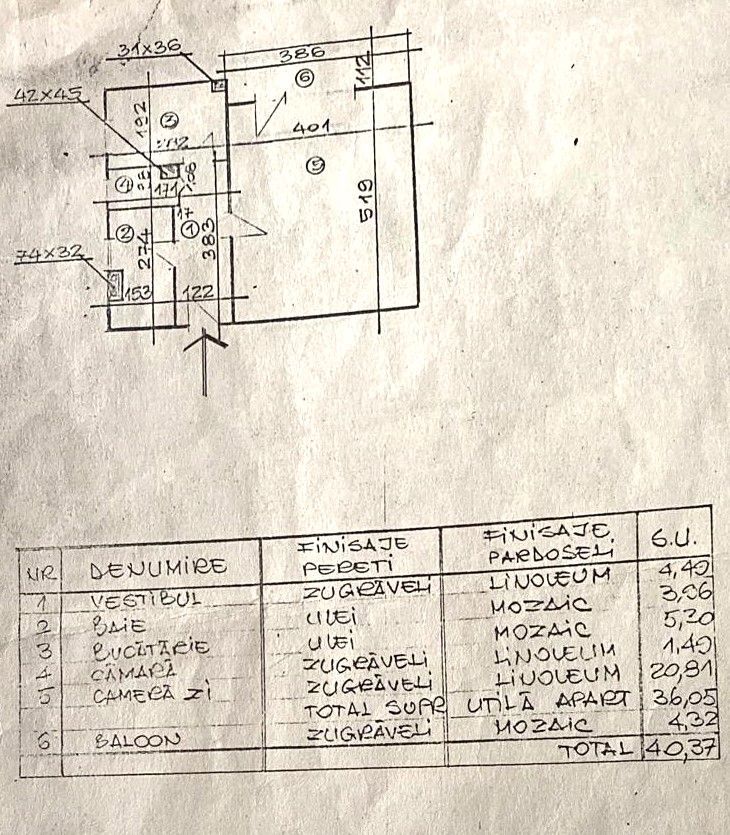 31x36
386
6
112
42x45
192
3
401
5
4
171
519
2
1
17
274
383
74x32
153
122
NR
DENUMIRE
FINISAJE PERETI
FINISAJE PARDOSELI
S.U.
1 VESTIBUL ZUGRĂVELI LINOLEUM 4,49
2 BAIE ULEI MOZAIC 3,96
3 BUCĂTĂRIE ULEI MOZAIC 5,30
4 CĂMARĂ ZUGRĂVELI LINOLEUM 1,49
5 CAMERĂ ZI ZUGRĂVELI LINOLEUM 20,81
TOTAL SUPR UTILĂ APART 36,05
6 BALCON ZUGRĂVELI MOZAIC 4,32
TOTAL 40,37